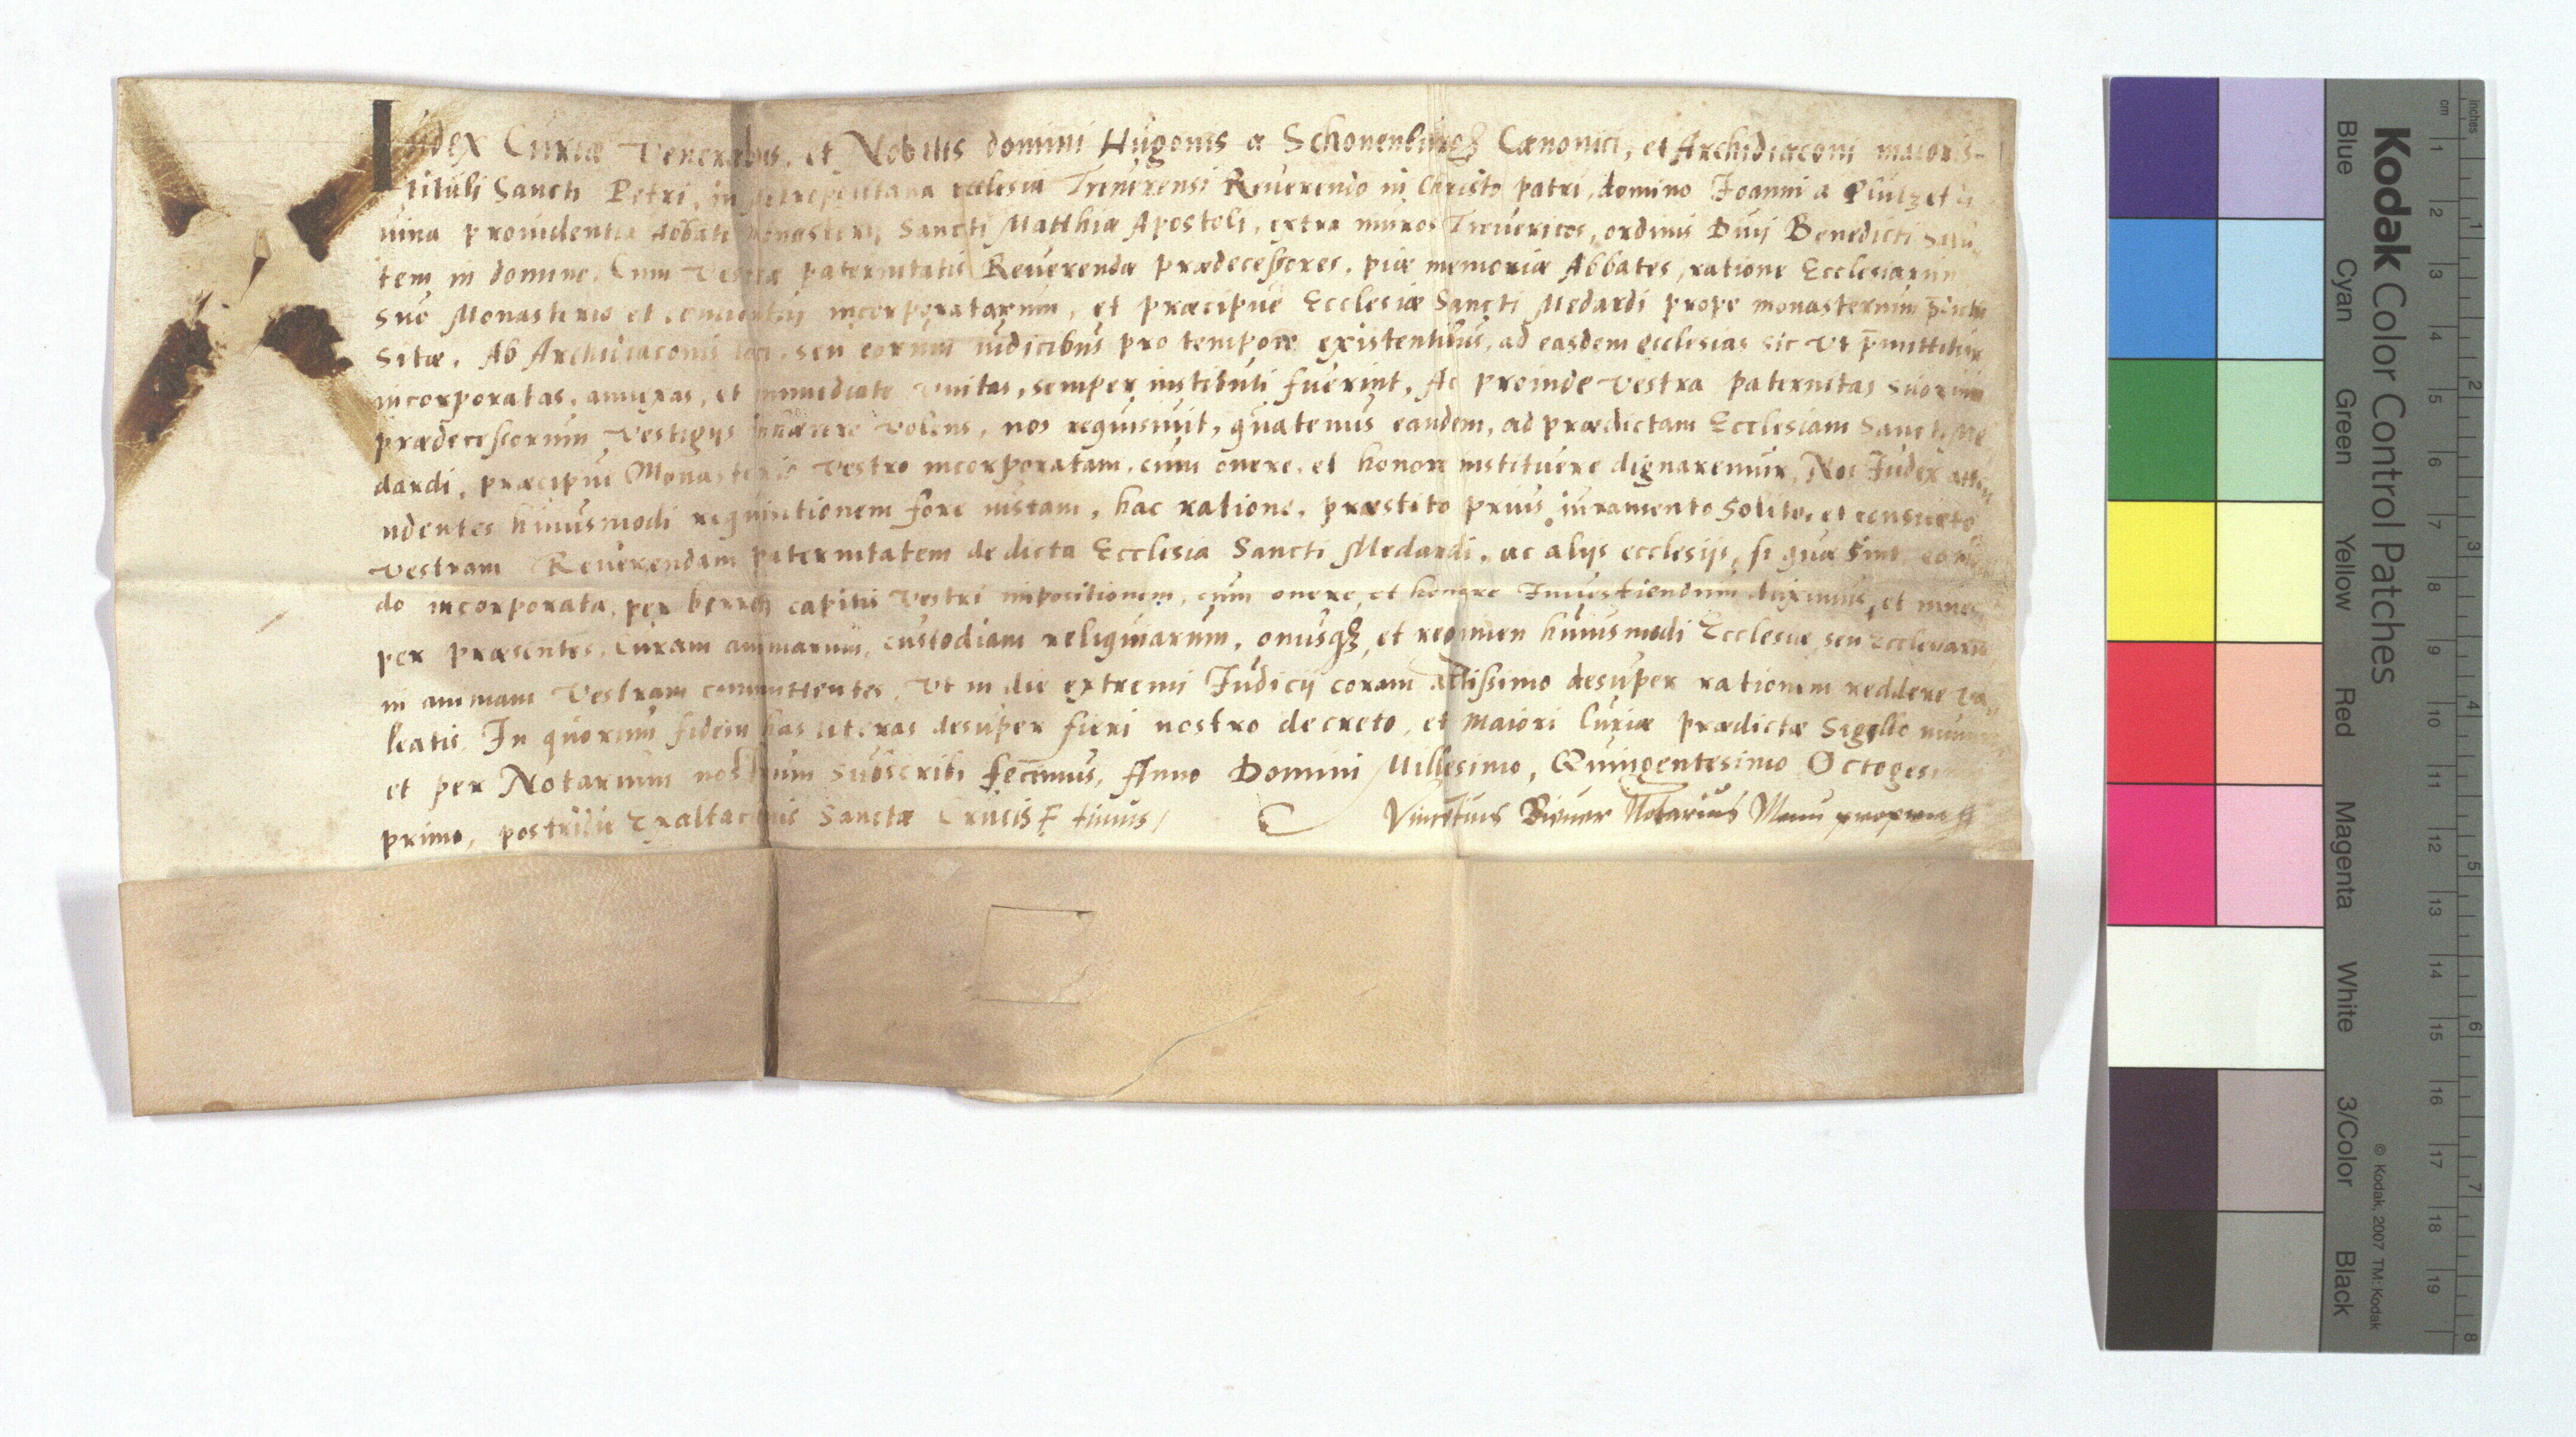 Iudex Curiæ Venerabilis, et Nobilis domini Hugonis a Schonenburgh Canonici, et Archidiaconi maioris
tituli Sancti Petri, in metropolitana ecclesia Treuirensi Reuerendo in Christo patri, domino Joanni a
uina prouidentia Abbati monasterij Sancti Matthiæ Apostoli, extra muros Treuericos, ordinis Diui Benedicti Salu
tem in domino. Cum Vestræ paternitatis Reuerendæ prædecessores, piæ memoriæ Abbates, ratione Ecclesiarum
suo Monasterio et incorporatarum, et præcipuè Ecclesiæ Sancti Medardi prope monasterium
sitæ, Ab Archidiaconis loci, seu eorum iudicibus pro tempore existentibus, ad easdem ecclesias sic Vt p̄mittitur
incorporatas, annexas, et immediate Vnitas, semper instituti fuerint, Ac proinde Vestra paternitas suorum
prædecessorum Vestigijs inhærere Volens, nos requisiuit, quatenus eandem, ad prædictam Ecclesiam Sancti Me
dardi, præcipui Monasterio Vestro incorporatam, cum onere, et honore instituere dignaremur, Nos Iudex atte
ndentes huiusmodi requisitionem fore iustam, hac ratione, præstito prius iuramento solito, et consueto
Vestram Reuerendam paternitatem de dicta Ecclesia Sancti Medardi, ac alijs ecclesijs, si quæ sint
do incorporata, per capitis Vestri impositionem, cum onere, et honore Inuestiendum duximus, et
per præsentes, Curam animarum, custodiam reliquiarum, onusqȝ, et regimen huiusmodi Ecclesiæ, seu Ecclesiarū
in animam Vestram committentes, Vt in die extremi Iudicij coram altissimo desuper rationem reddere va
leatis. In quorum fidem has literas desuper fieri nostro decreto, et Maiori Curiæ prædictæ Sigillo
et per Notarium nostrum subscribi fecimus, Anno Domini Millesimo, Quingentesimo Octogesimo
primo, postridie Exaltationis Sanctæ Crucis
Notarius Manu propria
Kodak Color Control Patches
Blue Cyan Green Yellow Red Magenta White 3/Color Black
© Kodak, 2007 TM: Kodak
cm 1 2 3 4 5 6 7 8 9 10 11 12 13 14 15 16 17 18 19
inches 1 2 3 4 5 6 7 8